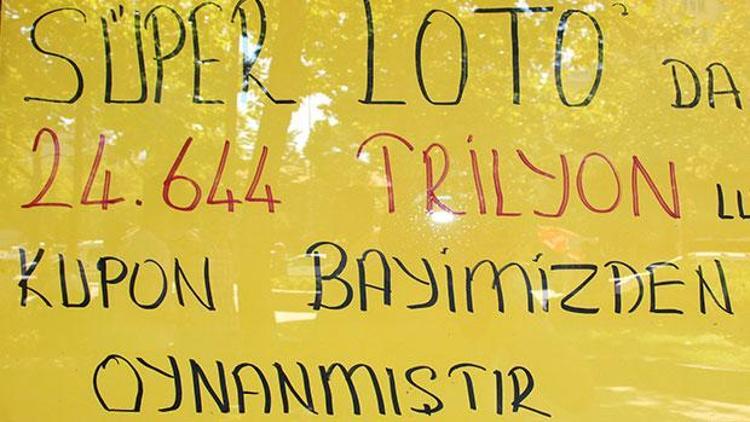 SÜPER LOTO' DA
24.644 TRİLYON LL
KUPON BAYİMİZDEN
OYNANMIŞTIR